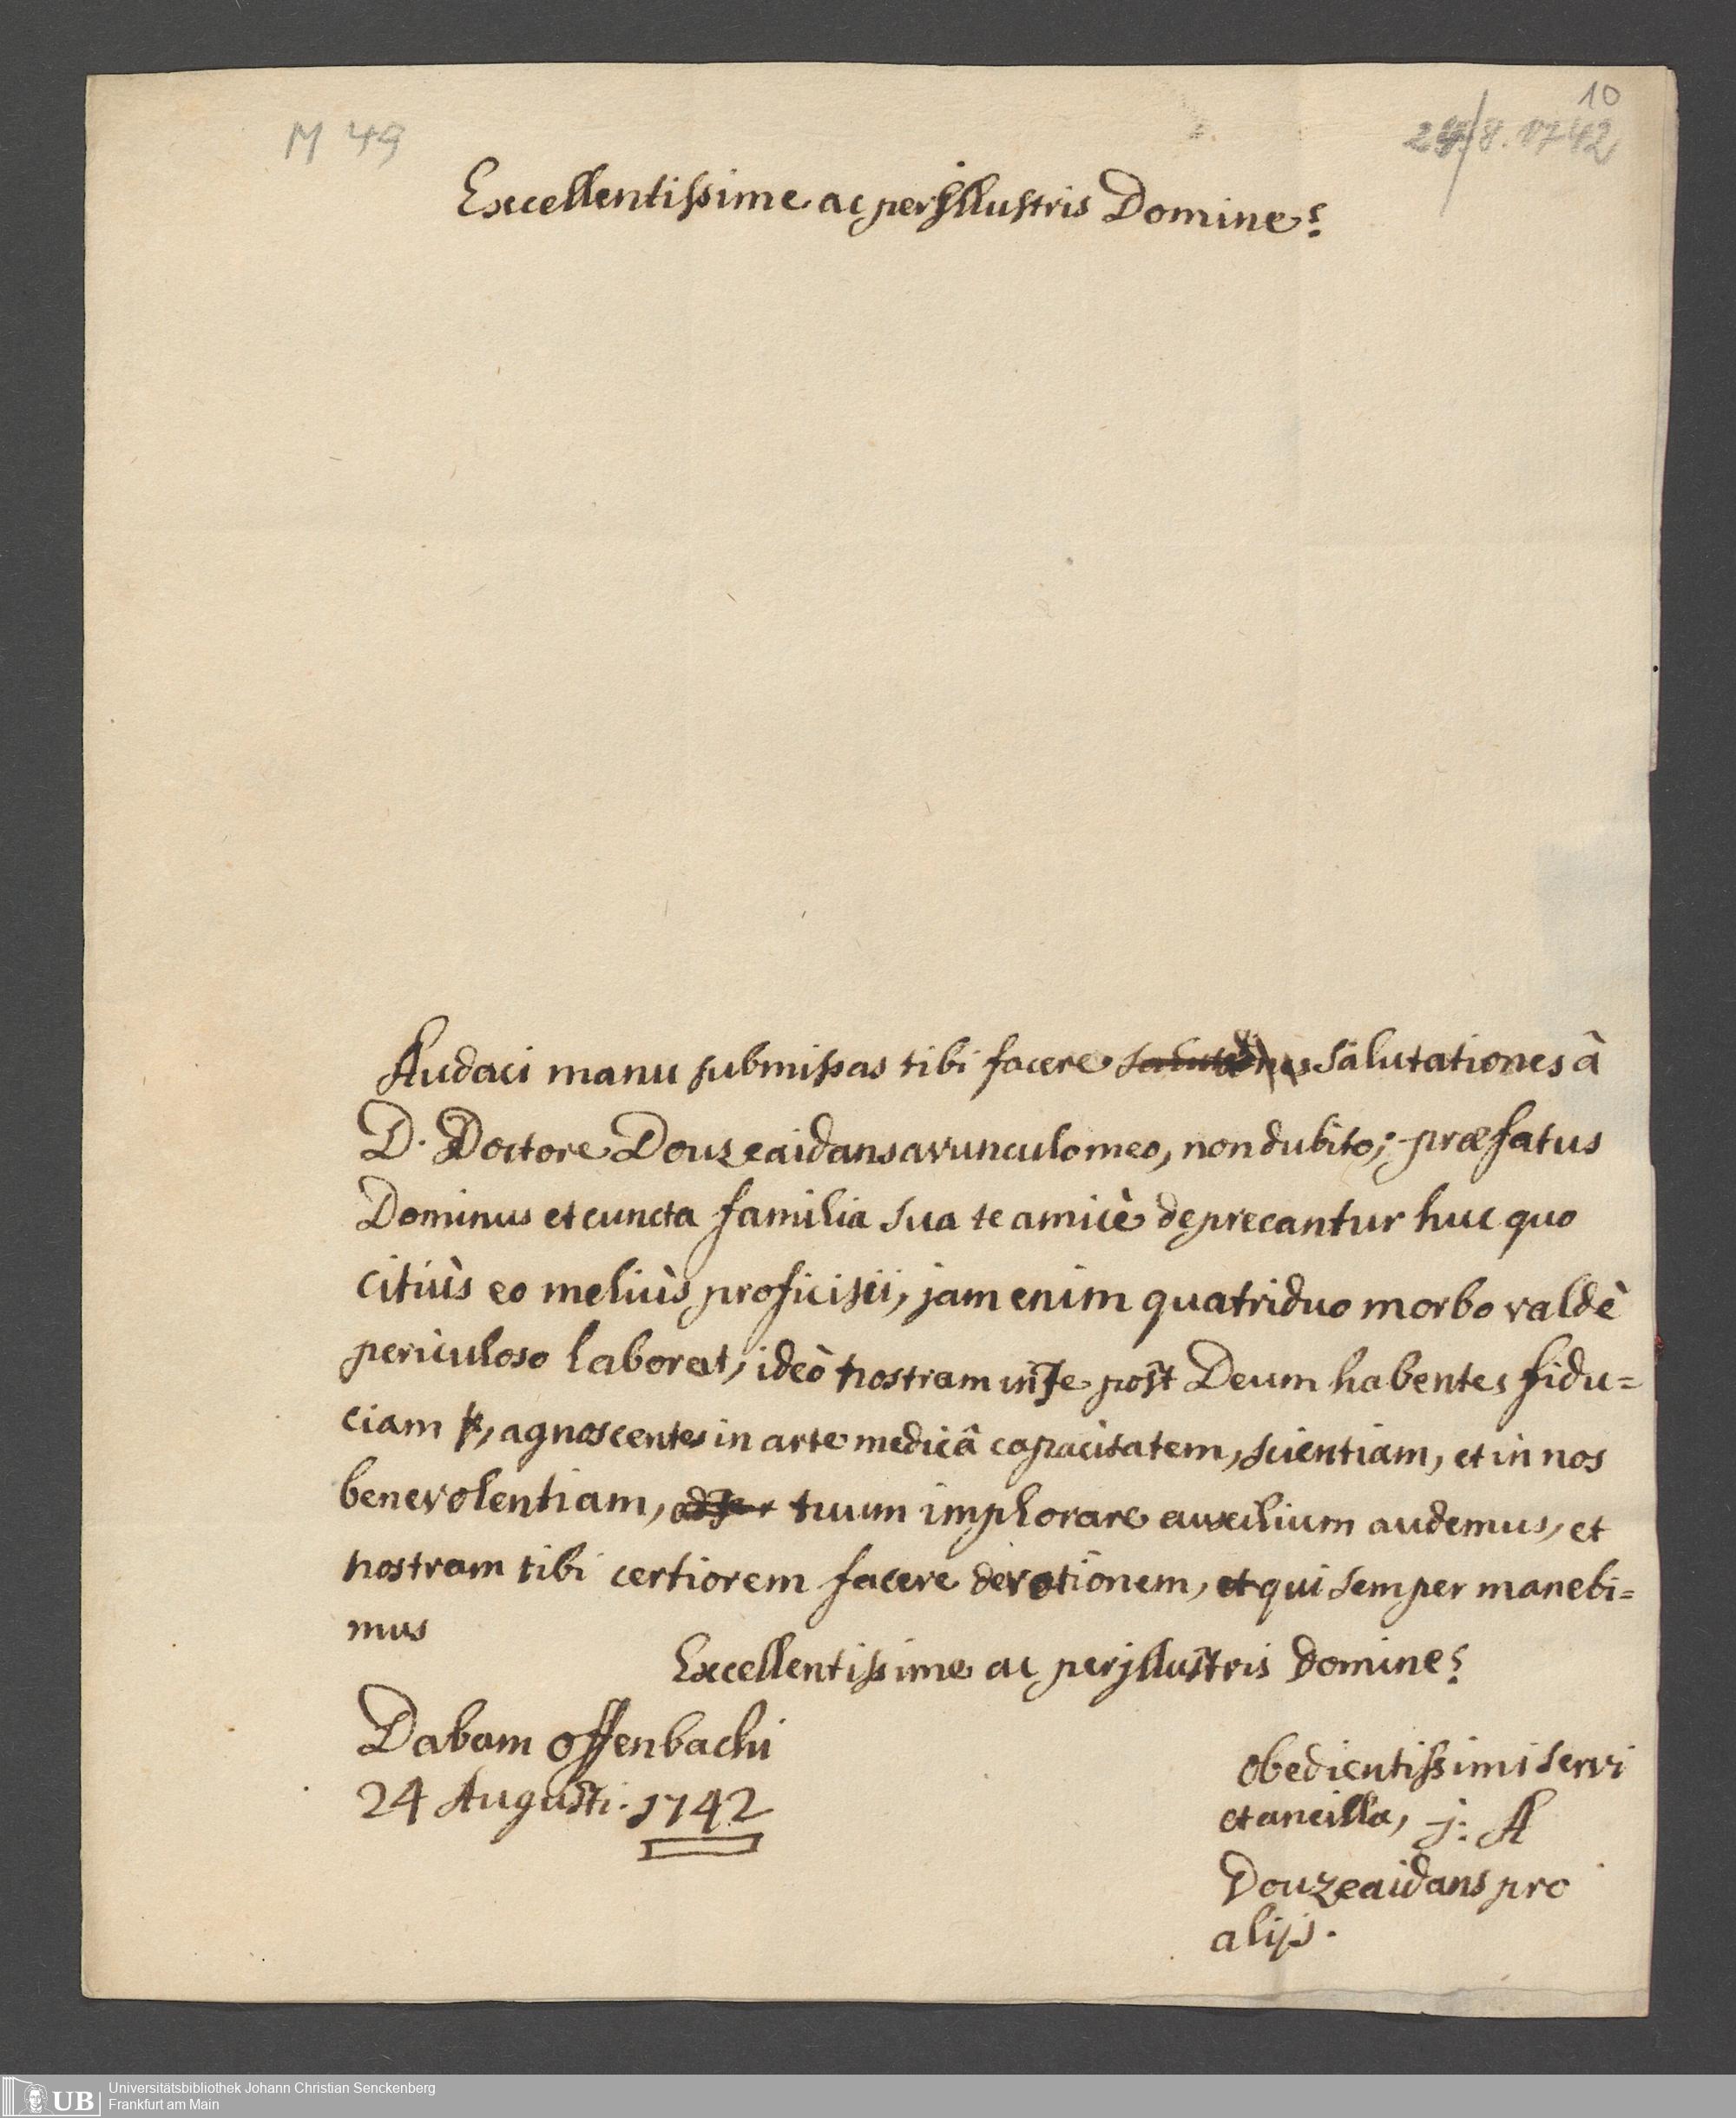 10
M 49
24/8. 1742
Excellentissime ac perjllustris Domine!
Audaci manu submissas tibi facere salutationes â
D. Doctore Douzeaidans avunculo meo, non dubito; præfatus
Dominus et cuncta familia sua te amicè deprecantur huc quo
citiùs eo meliùs proficisii, jam enim quatriduo morbo valdè
periculoso laborat, ideò nostram in te post Deum habentes fidu=
ciam, agnoscentes in arte medicâ capacitatem, scientiam, et in nos
benevolentiam, tuum implorare auxilium audemus, et
nostram tibi certiorem facere devotionem, et qui semper manebi=
mus
Excellentissime ac perjllustris Domine!
Dabam offenbachi
24 Augusti. 1742
obedientissimi servi
et ancilla, j: A
Douzeaidans pro
alijs.
UB
Universitätsbibliothek Johann Christian Senckenberg
Frankfurt am Main